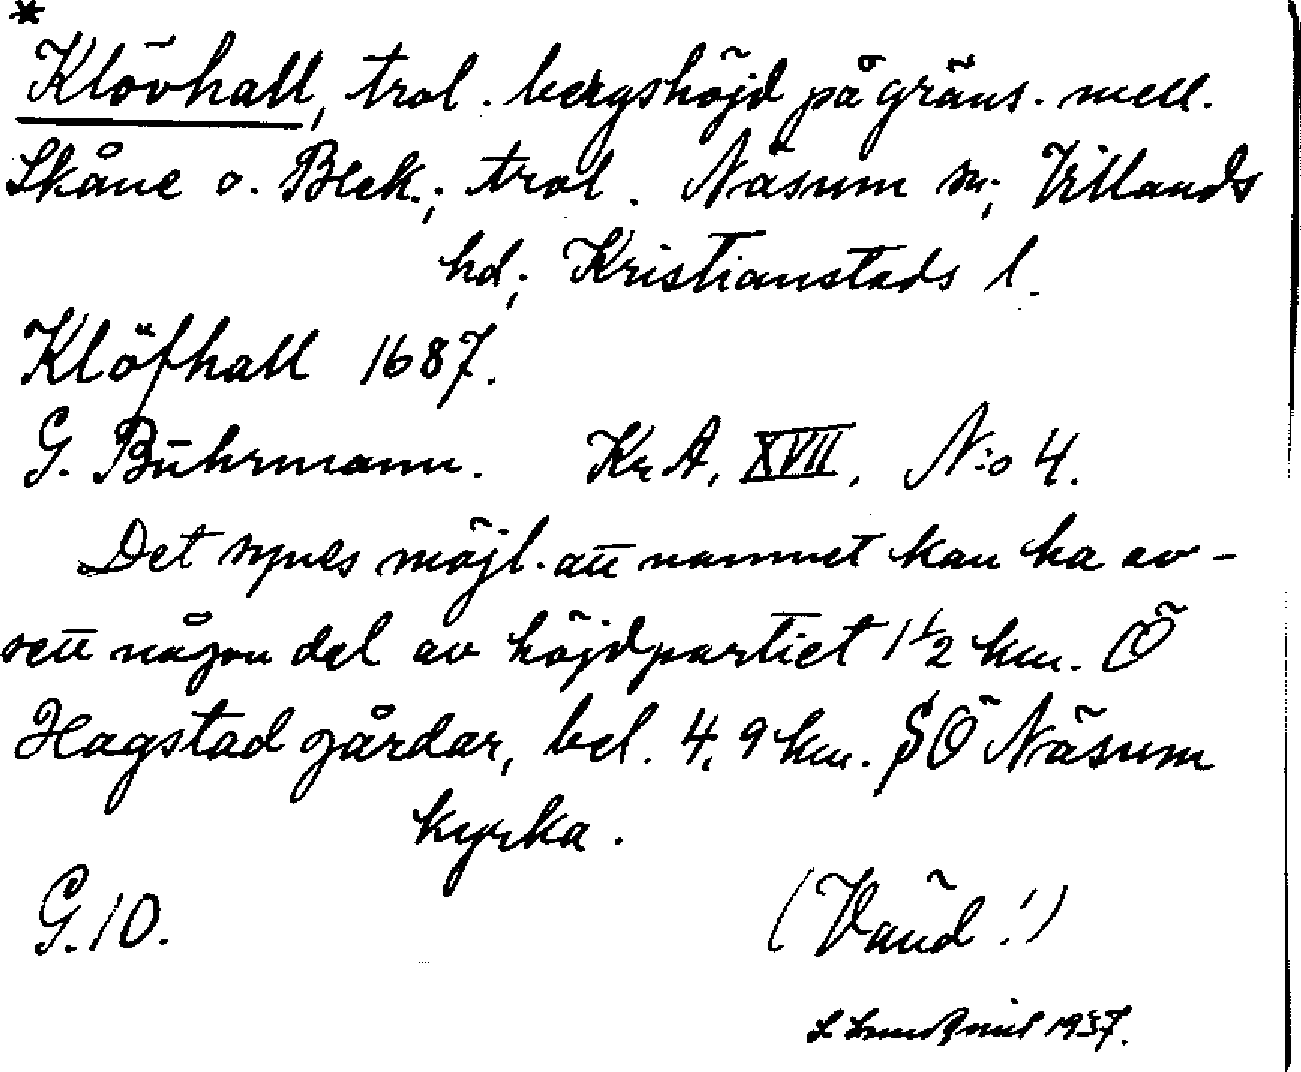 *
Klövhall, trol. bergshöjd på gräns. mell.
Skåne o. Blek.; trol. Näsum sn; Villands
hd; Kristianstads l.
Klöfhall 1687.
G. Buhrmann. Kr A, XVII, N:o 4.
Det synes möjl. att namnet kan ha av-
sett någon del av höjdpartiet 1 1/2 km. Ö
Hagstad gårdar, bel. 4,9 km. SÖ Näsum
kyrka.
G.10.
(Vänd!)
1937.